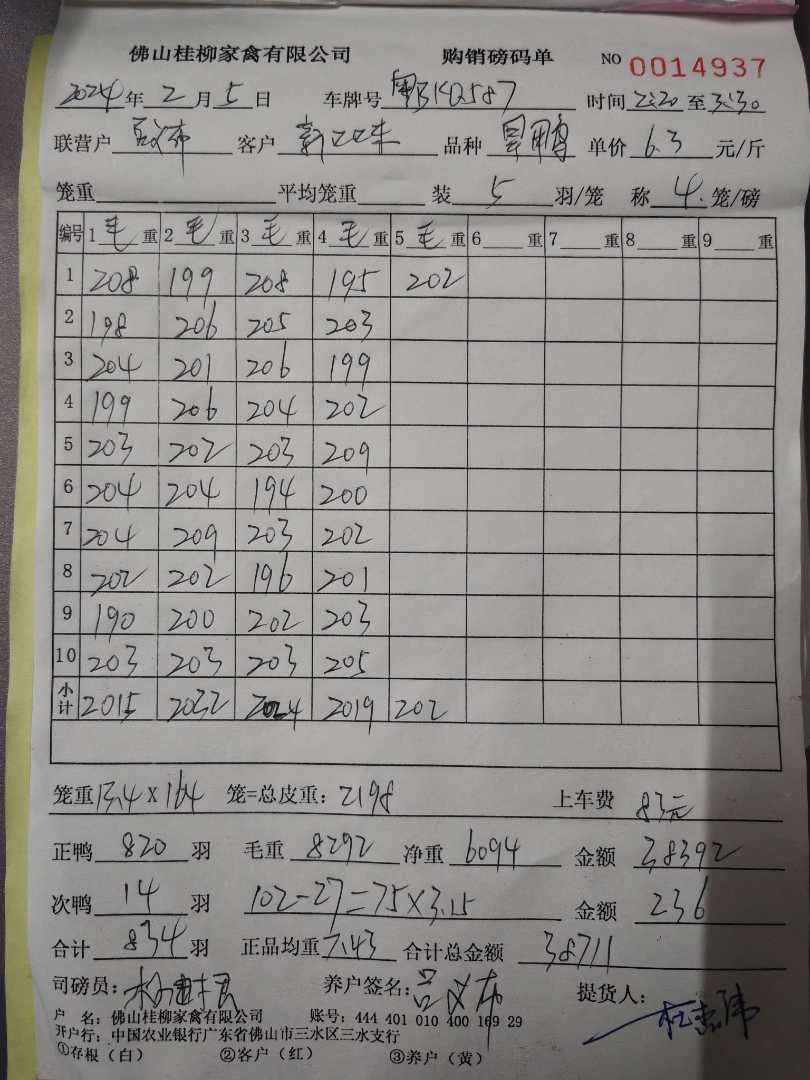 佛山桂柳家禽有限公司 购销磅码单 NO 0014937
2024年2月5日 车牌号 粤 KQ587 时间2:20至3:30
联营户 客户 品种 单价6.3元/斤
笼重 平均笼重 装5羽/笼 称4.笼/磅
编号 1毛重 2毛重 3毛重 4毛重 5毛重 6 重 7 重 8 重 9 重
1 208 199 208 195 202
2 198 206 205 203
3 204 201 206 199
4 199 206 204 202
5 203 202 203 209
6 204 204 194 200
7 204 209 203 202
8 202 202 196 201
9 190 200 202 203
10 203 203 203 205
小计 2015 2032 2024 2019 202
笼重13.4×164 笼=总皮重：2198 上车费 83元
正鸭 820 羽 毛重 8292 净重 6094 金额 38392
次鸭 14 羽 102-27=75×3.15 金额 236
合计 834 羽 正品均重7.43 合计总金额 38711
司磅员： 养户签名： 提货人：
户 名：佛山桂柳家禽有限公司 账号：444 401 010 400 169 29
开户行：中国农业银行广东省佛山市三水区三水支行
①存根（白） ②客户（红） ③养户（黄）